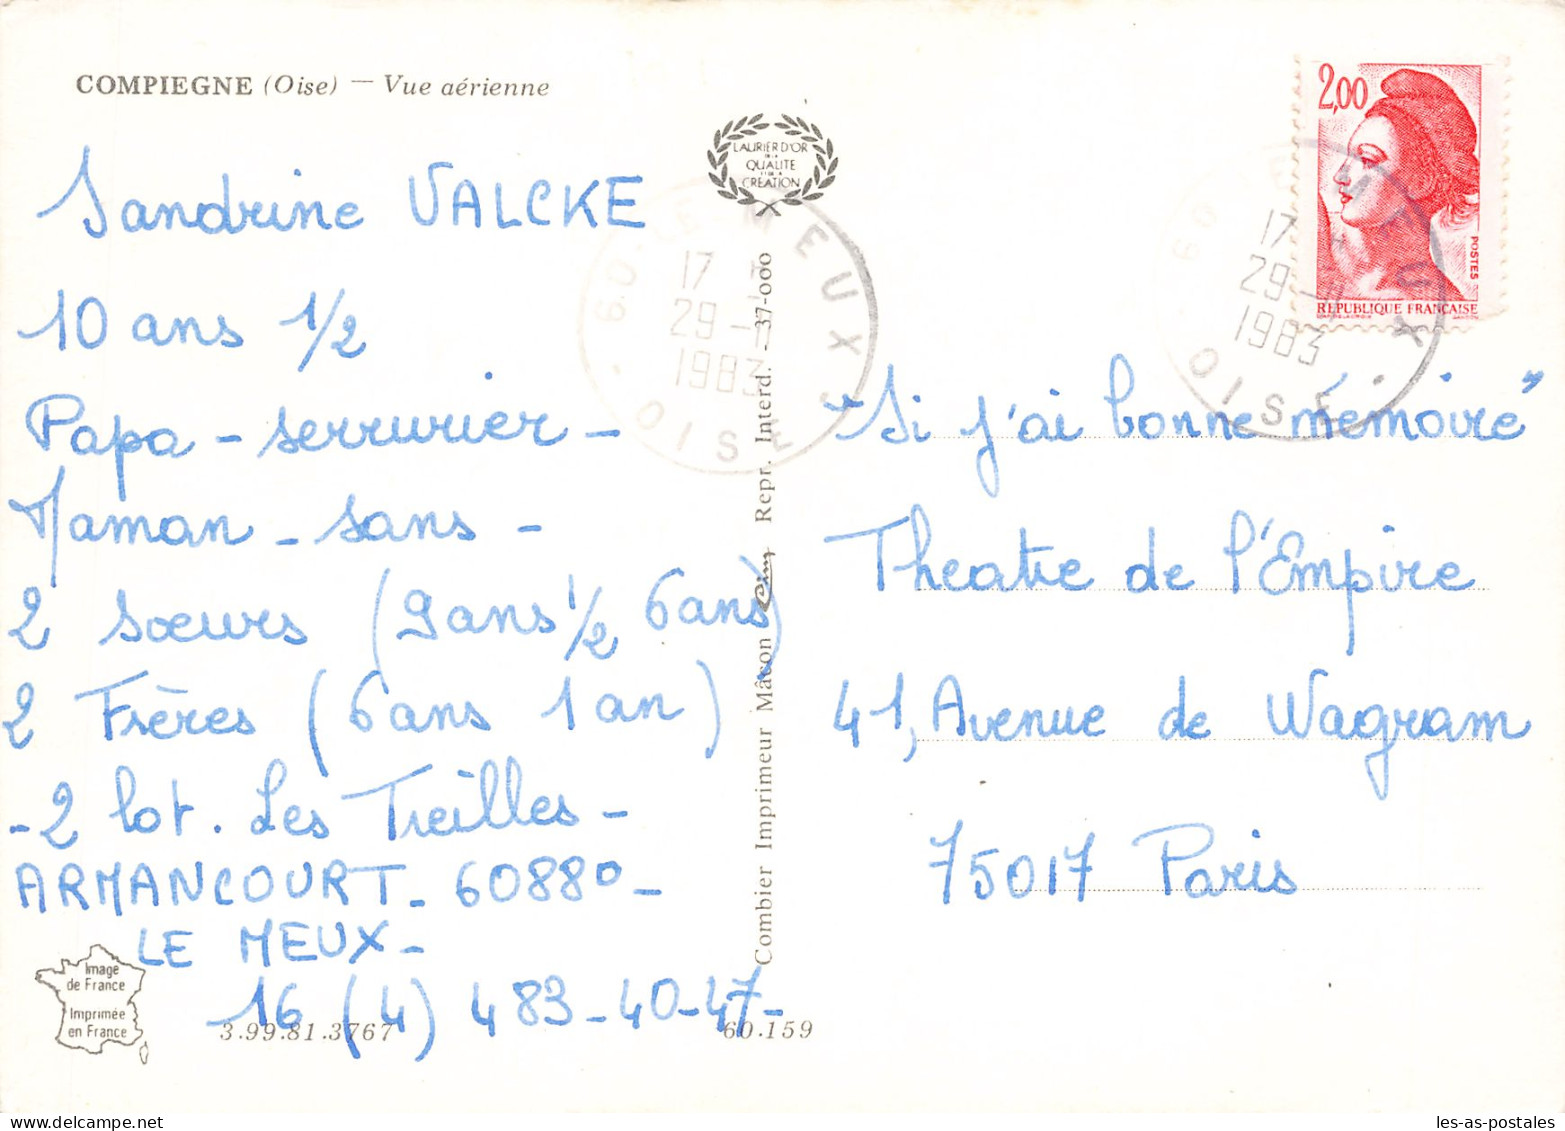 COMPIEGNE (Oise) — Vue aérienne
LAURIER D'OR
DE LA
QUALITE
ET DE LA
CREATION
2,00
POSTES
REPUBLIQUE FRANÇAISE
60 LE MEUX
17 H
29 -
1983
OISE
60 LE MEUX
17 H
29 -
1983
OISE
Sandrine VALCKE
10 ans 1/2
Papa - serrurier -
Maman - sans -
2 soeurs (9 ans 1/2 6 ans)
2 Frères (6 ans 1 an)
- 2 lot. Les Treilles -
ARMANCOURT - 60880 -
LE MEUX -
16 (4) 483-40-47-
"Si j'ai bonne mémoire"
Theatre de l'Empire
41, Avenue de Wagram
75017 Paris
Combier Imprimeur Mâcon Cim Repr. Interd. - 37-000
Image
de France
Imprimée
en France
3.99.81.3767
60.159
les-as-postales